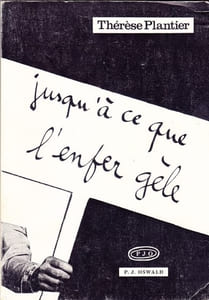 Thérèse Plantier
jusqu'à ce que
l'enfer gèle
PJO
P. J. OSWALD